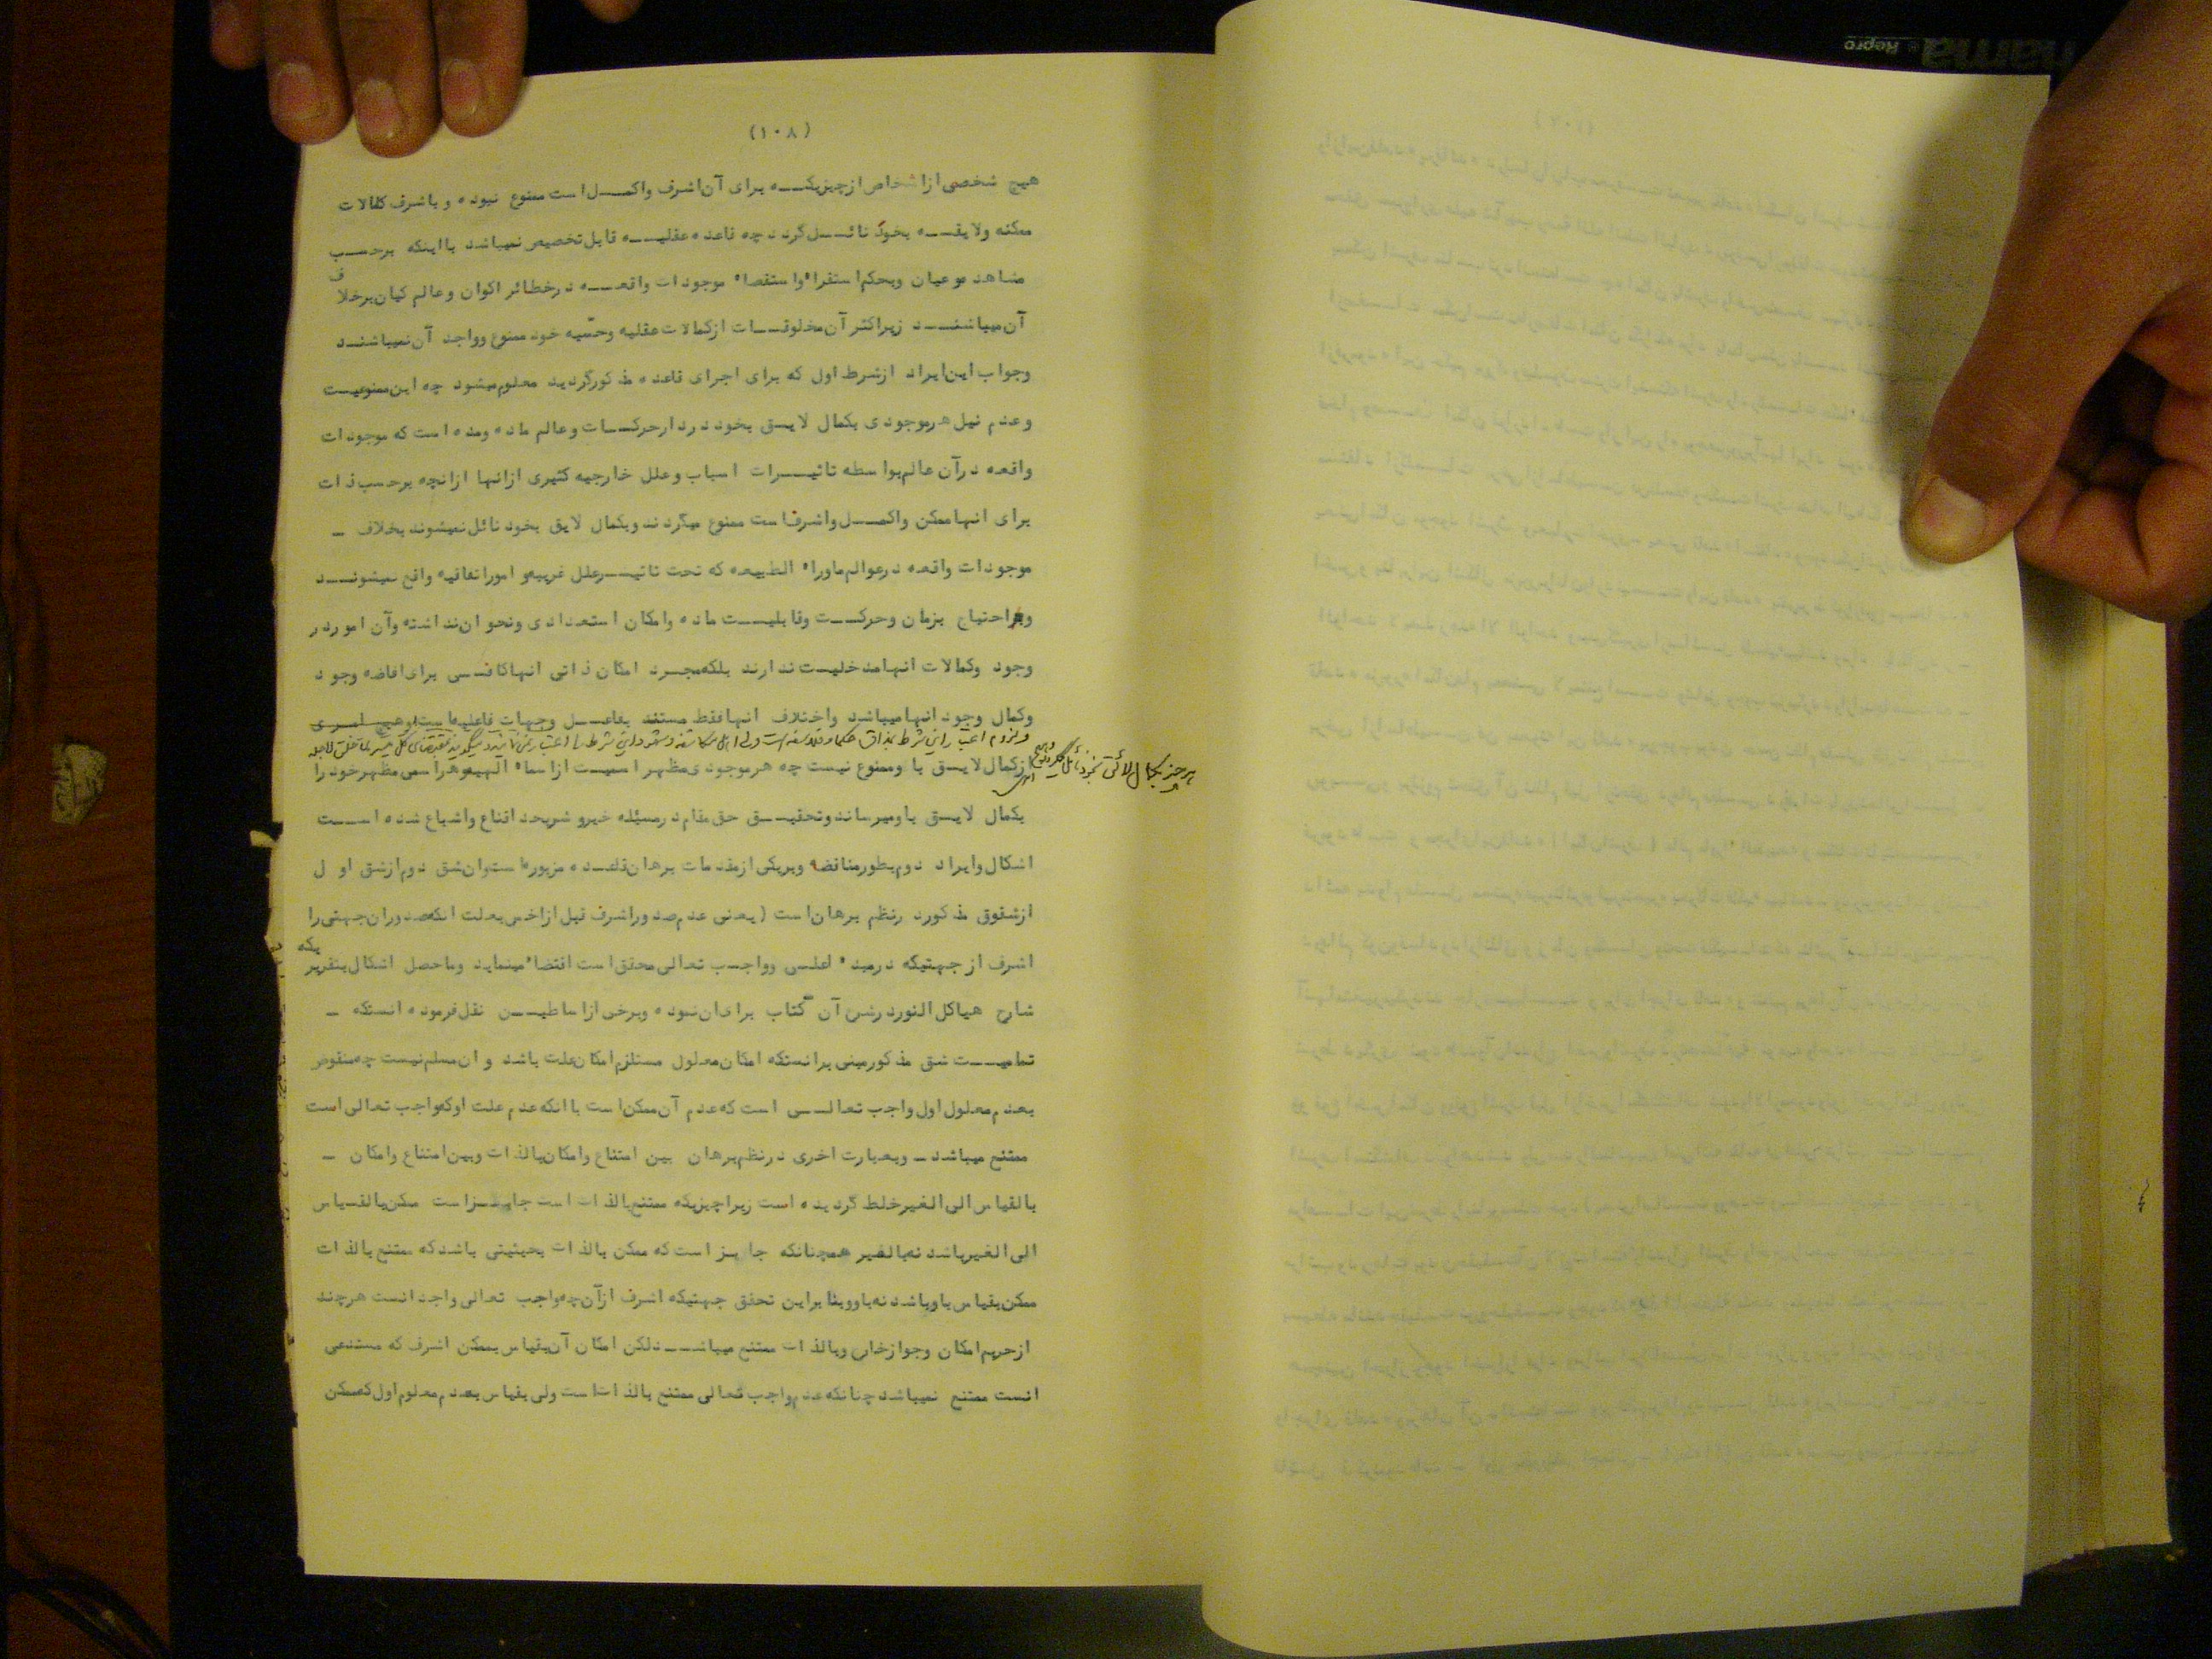 (۱۰۸)
هیچ شخصی از اشخاص از چیزیکه برای آن اشرف و اکمل است ممنوع نبوده و باشرف کمالات
ممکنه ولایقه بخود نائل گردد چه قاعده عقلیه قابل تخصیص نمیباشد با اینکه برحسب
مشاهده و عیان و بحکم استقراء و استقصاء موجودات واقعه در خطائر اکوان و عالم کیان برخلاف
آن میباشند زیرا کثر آن مخلوقات از کمالات عقلیه و حسّیه خود ممنوع و واجد آن نمیباشند
وجواب این ایراد از شرط اول که برای اجرای قاعده مذکور گردید معلوم میشود چه این ممنوعیت
وعدم نیل هر موجودی بکمال لایق بخود در دار حرکات و عالم ماده و مده است که موجودات
واقعه در آن عالم بواسطه تاثیرات اسباب و علل خارجیه کثیری از انها از انچه برحسب ذات
برای انها ممکن و اکمل و اشرف است ممنوع میگردند و بکمال لایق بخود نائل نمیشوند بخلاف ـ
موجودات واقعه در عوالم ماوراء الطبیعه که تحت تاثیر علل غریبه و امور اتفاقیه واقع نمیشوند
و احتیاج بزمان و حرکت و قابلیت ماده و امکان استعدادی و نحو ان نداشته و آن امور در
وجود و کمالات انها مدخلیت ندارند بلکه مجرد امکان ذاتی انها کافی برای افاضه وجود
وکمال وجود انها میباشد و اختلاف انها فقط مستند بفاعل و جهات فاعلیه است و هیچ امری
ولزوم اعتبار این شرط بمذاق حکما و فلاسفه است ولی اهل مکاشفه و شهود این شرط را اعتبار
هر چیز بکمال لائق بخود نائل میگردد
از کمال لایق با و ممنوع نیست چه هر موجودی مظهر اسمیست از اسماء آلهیه و هر اسمی مظهر خود را
بکمال لایق باو میرساند و تحقیق حق مقام در مسئله خیر و شر بحد اقناع و اشباع شده است
اشکال و ایراد دوم بطور مناقضه و بر یکی از مقدمات برهان قاعده مزبوره است و ان شق دوم از شق اول
از شقوق مذکور در نظم برهان است (یعنی عدم صدور اشرف قبل از اخس بعلت انکه صدور ان جهتی را
اشرف از جهتیکه در مبدء اعلی و واجب تعالی محقق است اقتضاء مینماید و ماحصل اشکال بتقریریکه
شارح هیاکل النور در شرح آن کتاب برای ان نموده و برخی از اساطین نقل فرموده انستکه ـ
تمامیت شق مذکور مبنی بر انستکه امکان معلول مستلزم امکان علت باشد و ان مسلم نیست چه منقوض
بعدم معلول اول واجب تعالی است که عدم آن ممکن است با انکه عدم علت او که واجب تعالی است
ممتنع میباشد ـ وبعبارت اخری در نظم برهان بین امتناع و امکان بالذات و بین امتناع و امکان ـ
بالقیاس الی الغیر خلط گردیده است زیرا چیزیکه ممتنع بالذات است جایز است ممکن بالقیاس
الی الغیر باشد نه بالغیر همچنانکه جایز است که ممکن بالذات بحیثیتی باشد که ممتنع بالذات
ممکن بقیاس باو باشد نه باو و بنا براین تحقق جهتیکه اشرف از آن چه واجب تعالی واجد انست هرچند
از حریم امکان و جواز خارج و بالذات ممتنع میباشد لکن امکان آن بقیاس بممکن اشرف که مستدعی
انست ممتنع نمیباشد چنانکه عدم واجب تعالی ممتنع بالذات است ولی بقیاس بعدم معلوم اول که ممکن